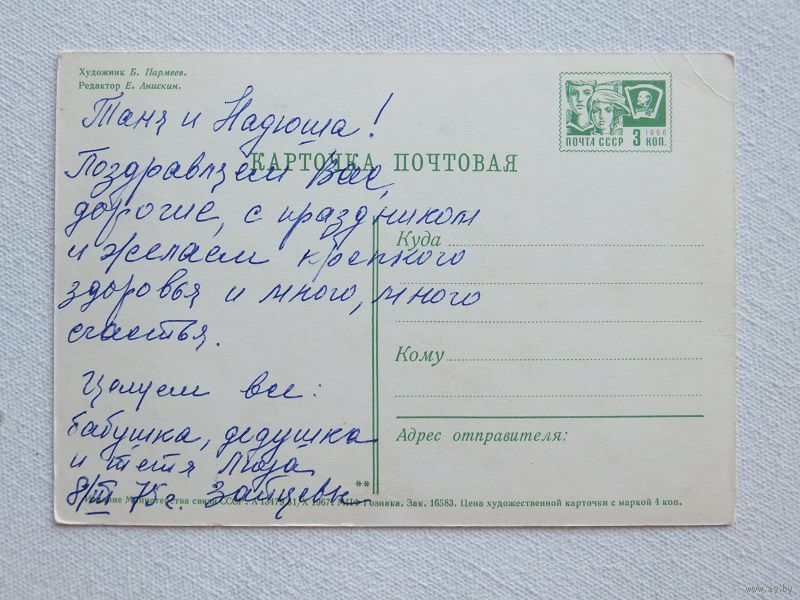 Художник Б. Пармеев.
Редактор Е. Анискин.
1966
ПОЧТА СССР 3 КОП.
КАРТОЧКА ПОЧТОВАЯ
Таня и Надюша!
Поздравляем Вас,
дорогие, с праздником
и желаем крепкого
здоровья и много, много
счастья.
Целуем все:
бабушка, дедушка
и тетя Люза
8/III г.
Куда
Кому
Адрес отправителя:
**
Издание Министерства связи СССР. 1967. МПФ Гознака. Зак. 16583. Цена художественной карточки с маркой 4 коп.
www.ay.by